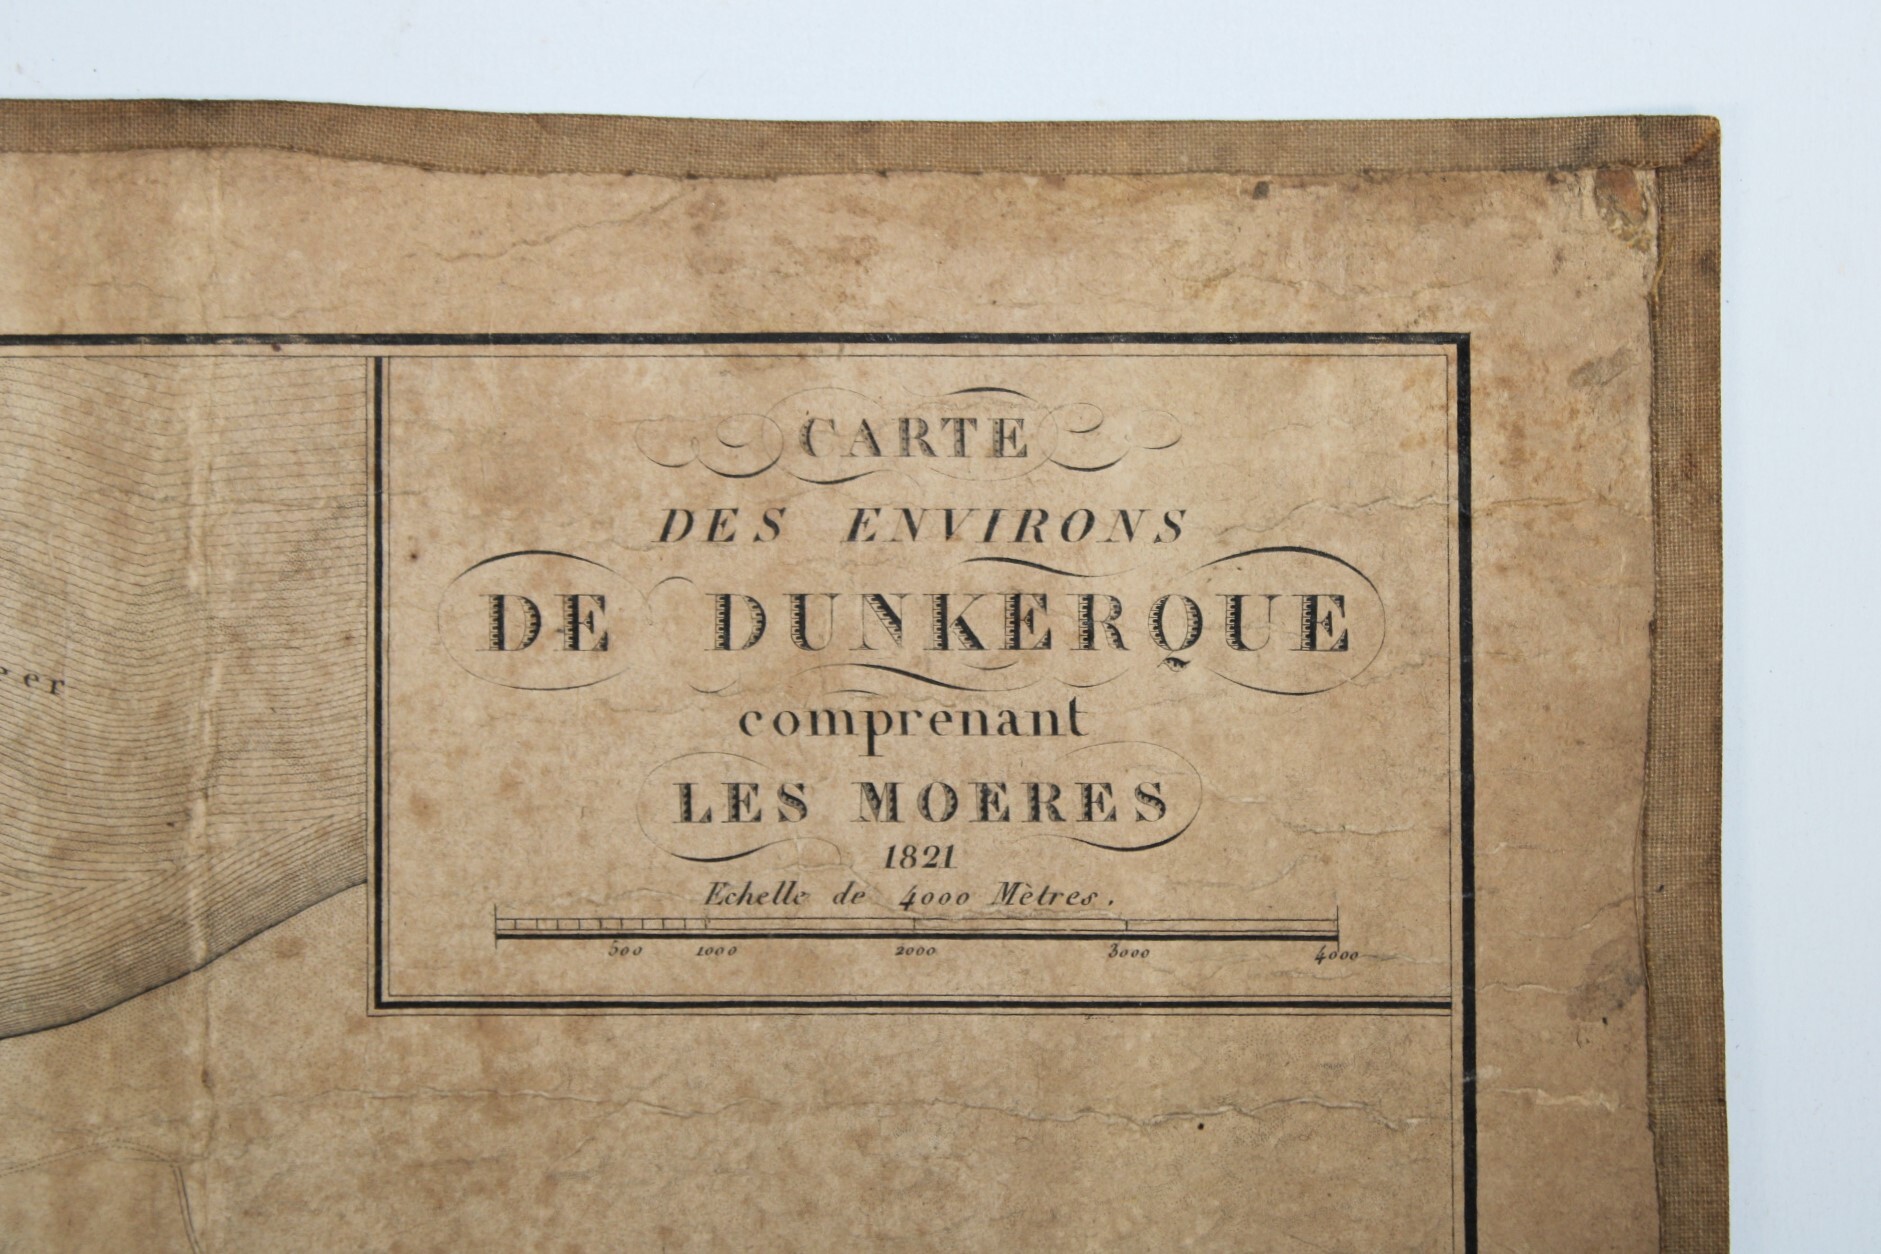 CARTE
DES ENVIRONS
DE DUNKERQUE
comprenant
LES MOERES
1821
Echelle de 4000 Mètres.
500 1000 2000 3000 4000